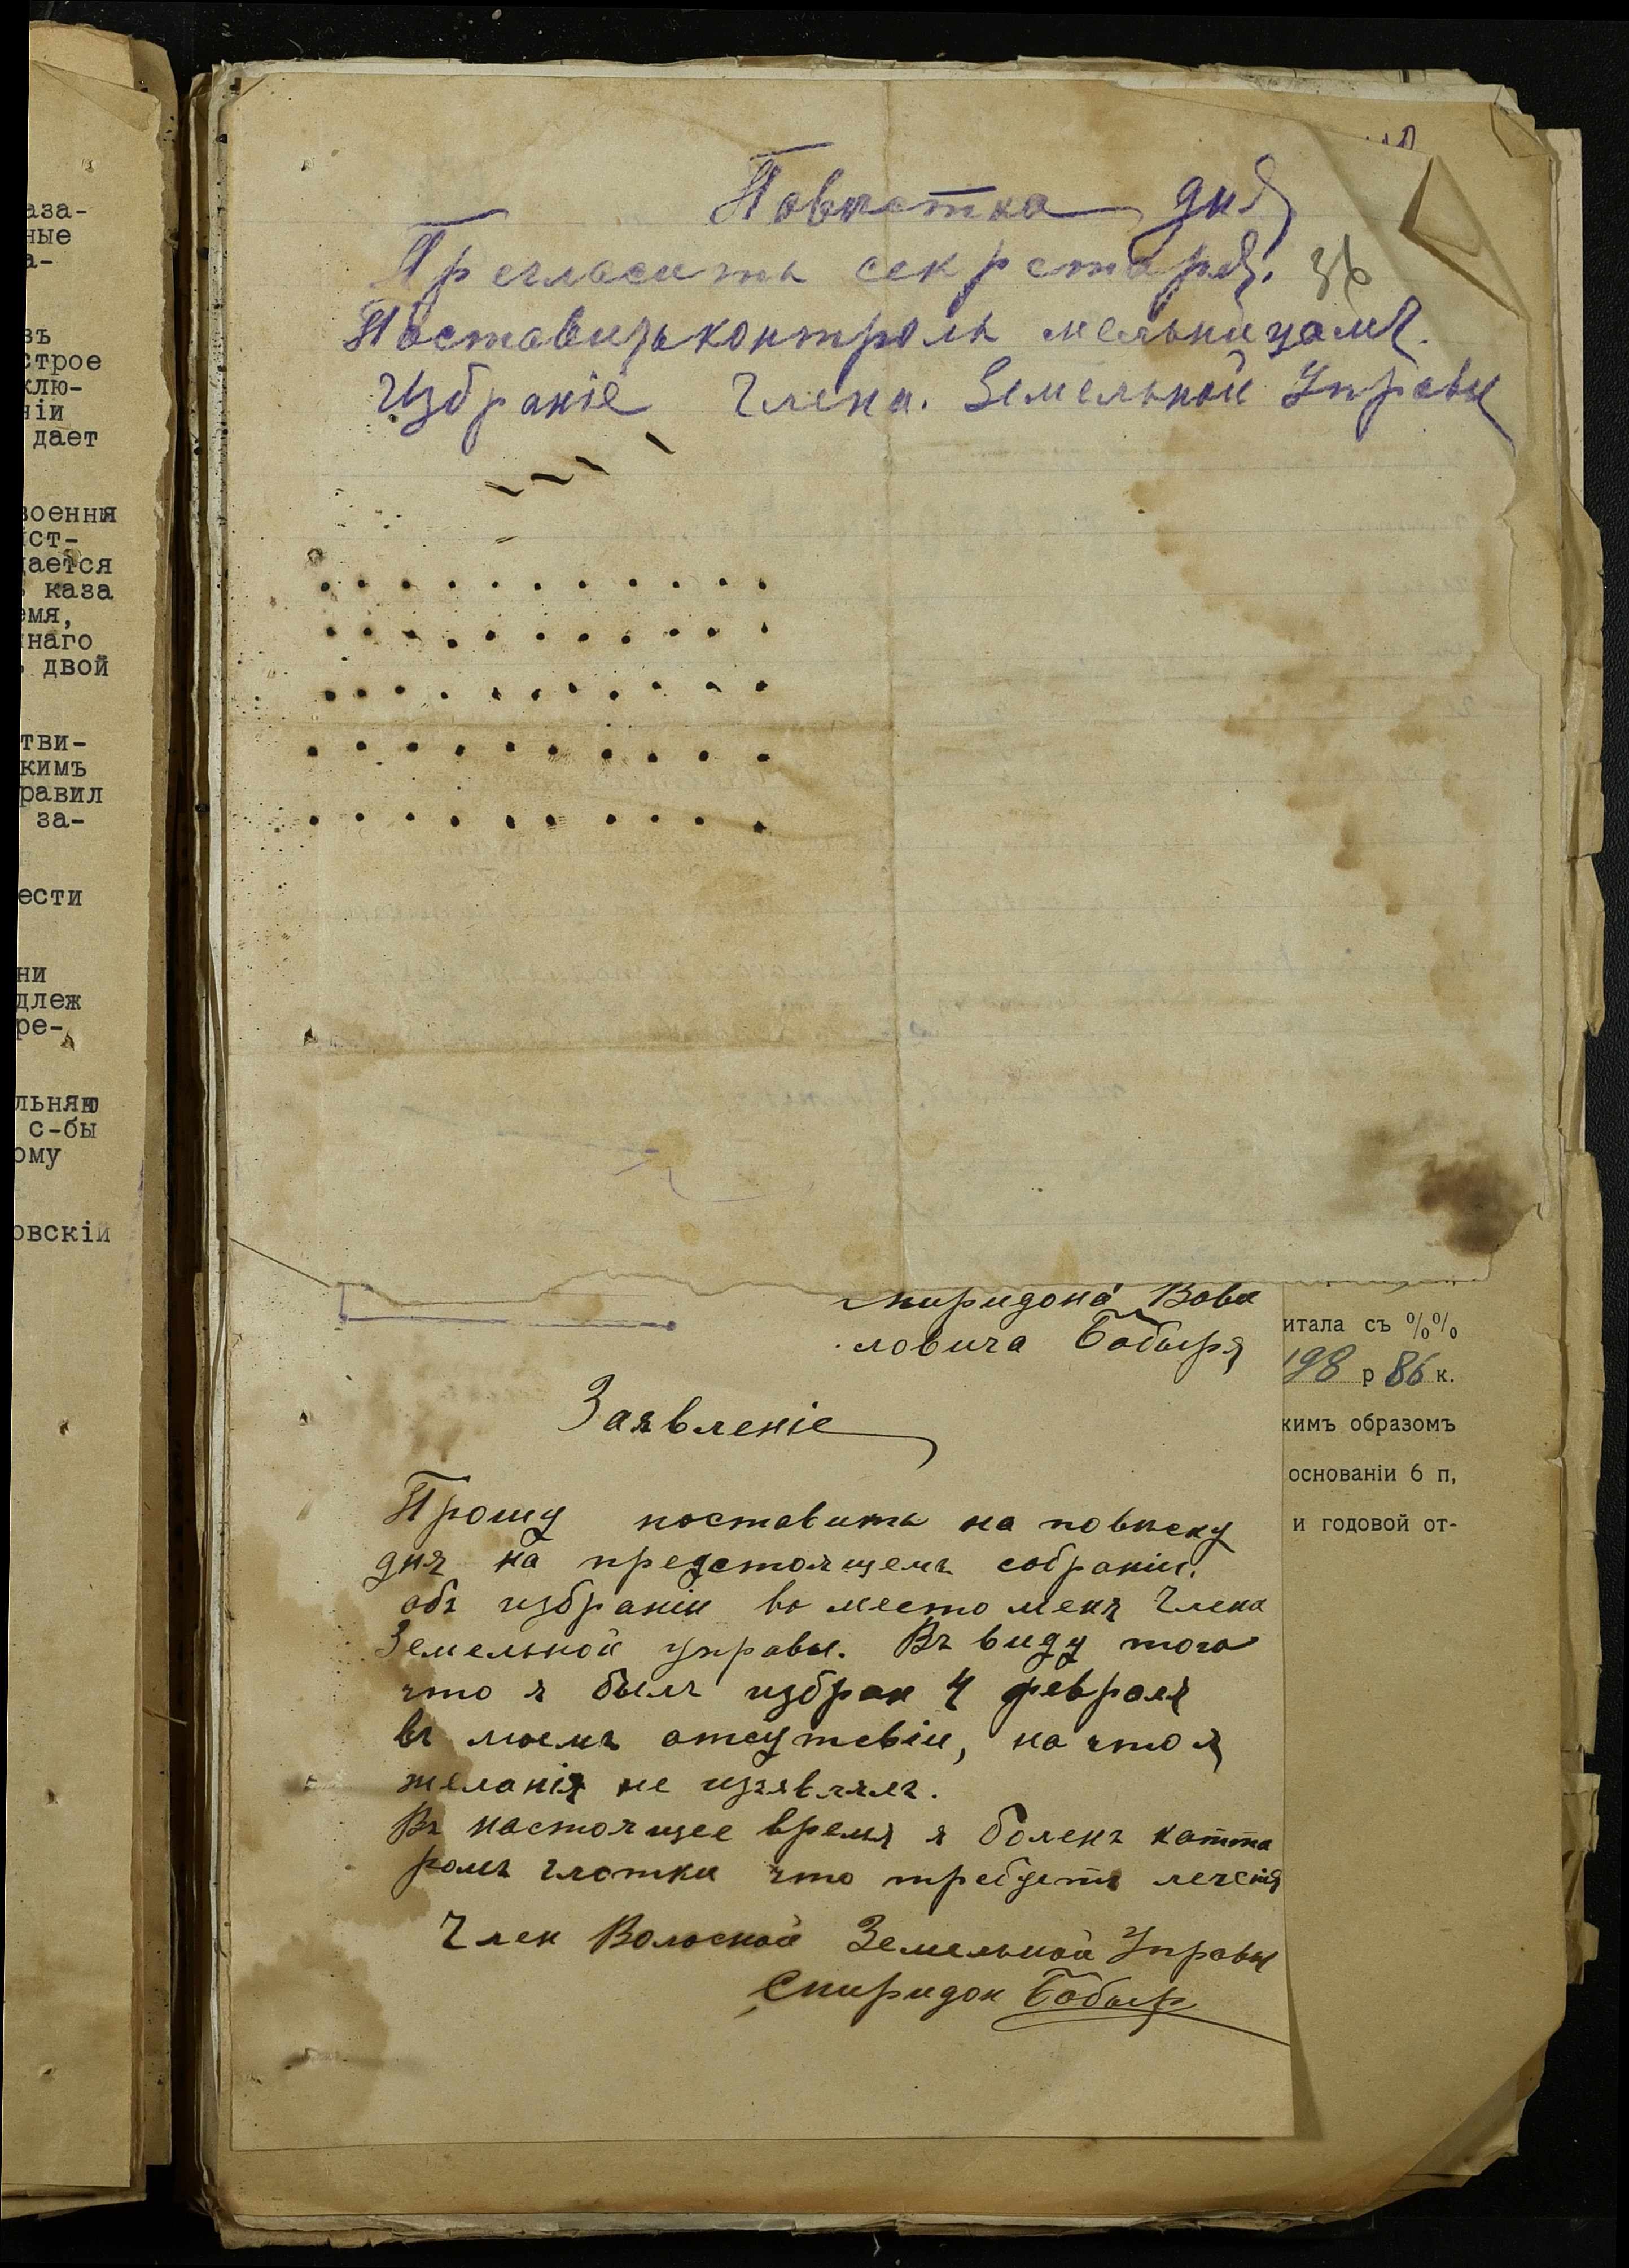 аза-
ные
а-
въ
строе
клю-
ніи
дает
военныя
ист-
дается
каза
емя,
наго
двой
тви-
кимъ
равил
за-
ести
ни
длеж
ре-
льняю
с-бы
ому
овскій
Повѣстка дня
Пregласить секретаря. 36
Поставить контроль мельницамъ.
Избраніе Члена. Земельной Управы
Спиридона Вави
ловича Бобыря
Заявленіе
Прошу поставить на повѣску
дня на предстоящемъ собраніи.
объ избраніи во место меня Члена
Земельной управы. Въ виду того
что я былъ избран 4 февраля
въ моемъ отсутсвіи, на что я
желанія не изъявлялъ.
Въ настоящее время я боленъ катта
ромъ глотки что требуетъ леченія
Член Волосной Земельной Управы
Спиридон Бобыр
итала съ %%
198 р 86 к.
кимъ образомъ
основаніи 6 п,
и годовой от-